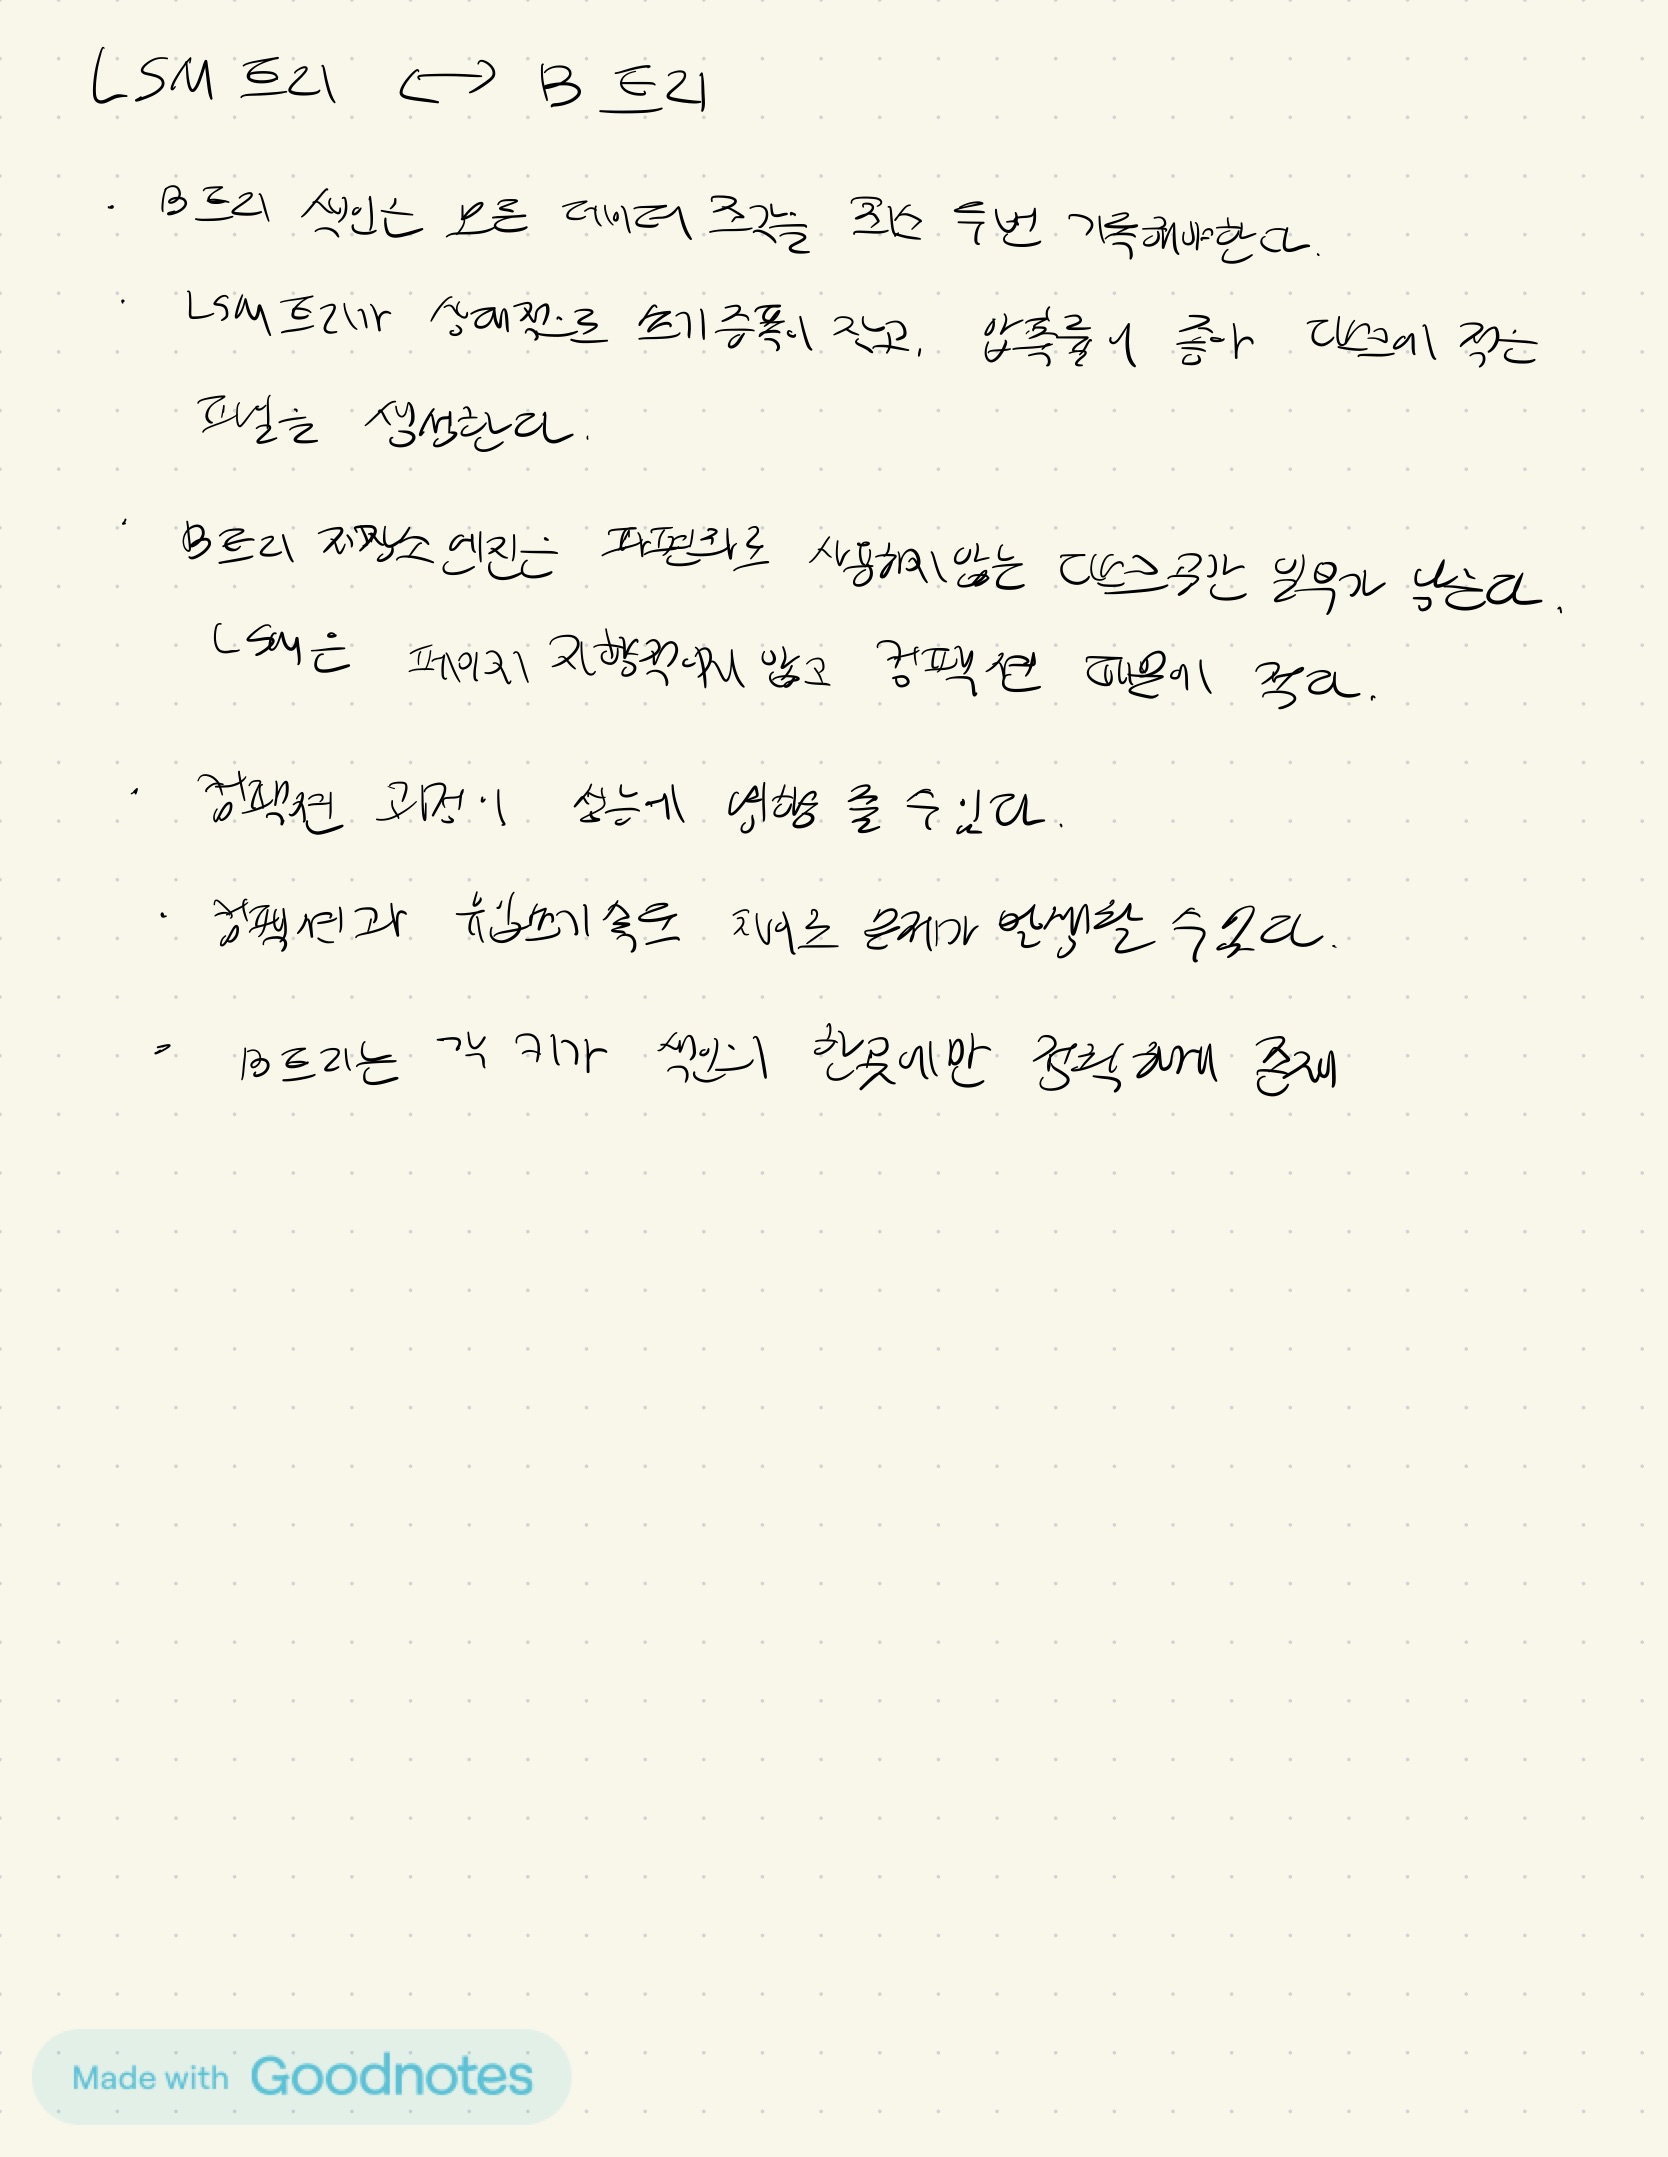 LSM 트리 ↔ B 트리
· B 트리 색인은 모든 데이터 조각을 최소 두번 기록해야한다.
· LSM 트리가 상대적으로 쓰기증폭이 작고, 압축률이 좋아 디스크에 적은
파일을 생성한다.
· B트리 저장소 엔진은 파편화로 사용하지 않는 디스크 공간 일부가 남는다.
LSM은 페이지 지향적이지 않고 컴팩션 때문에 적다.
· 컴팩션 과정이 성능에 영향 줄 수 있다.
· 컴팩션과 유입쓰기 속도 차이로 문제가 발생할 수 있다.
- B트리는 각 키가 색인의 한곳에만 정확하게 존재
Made with Goodnotes